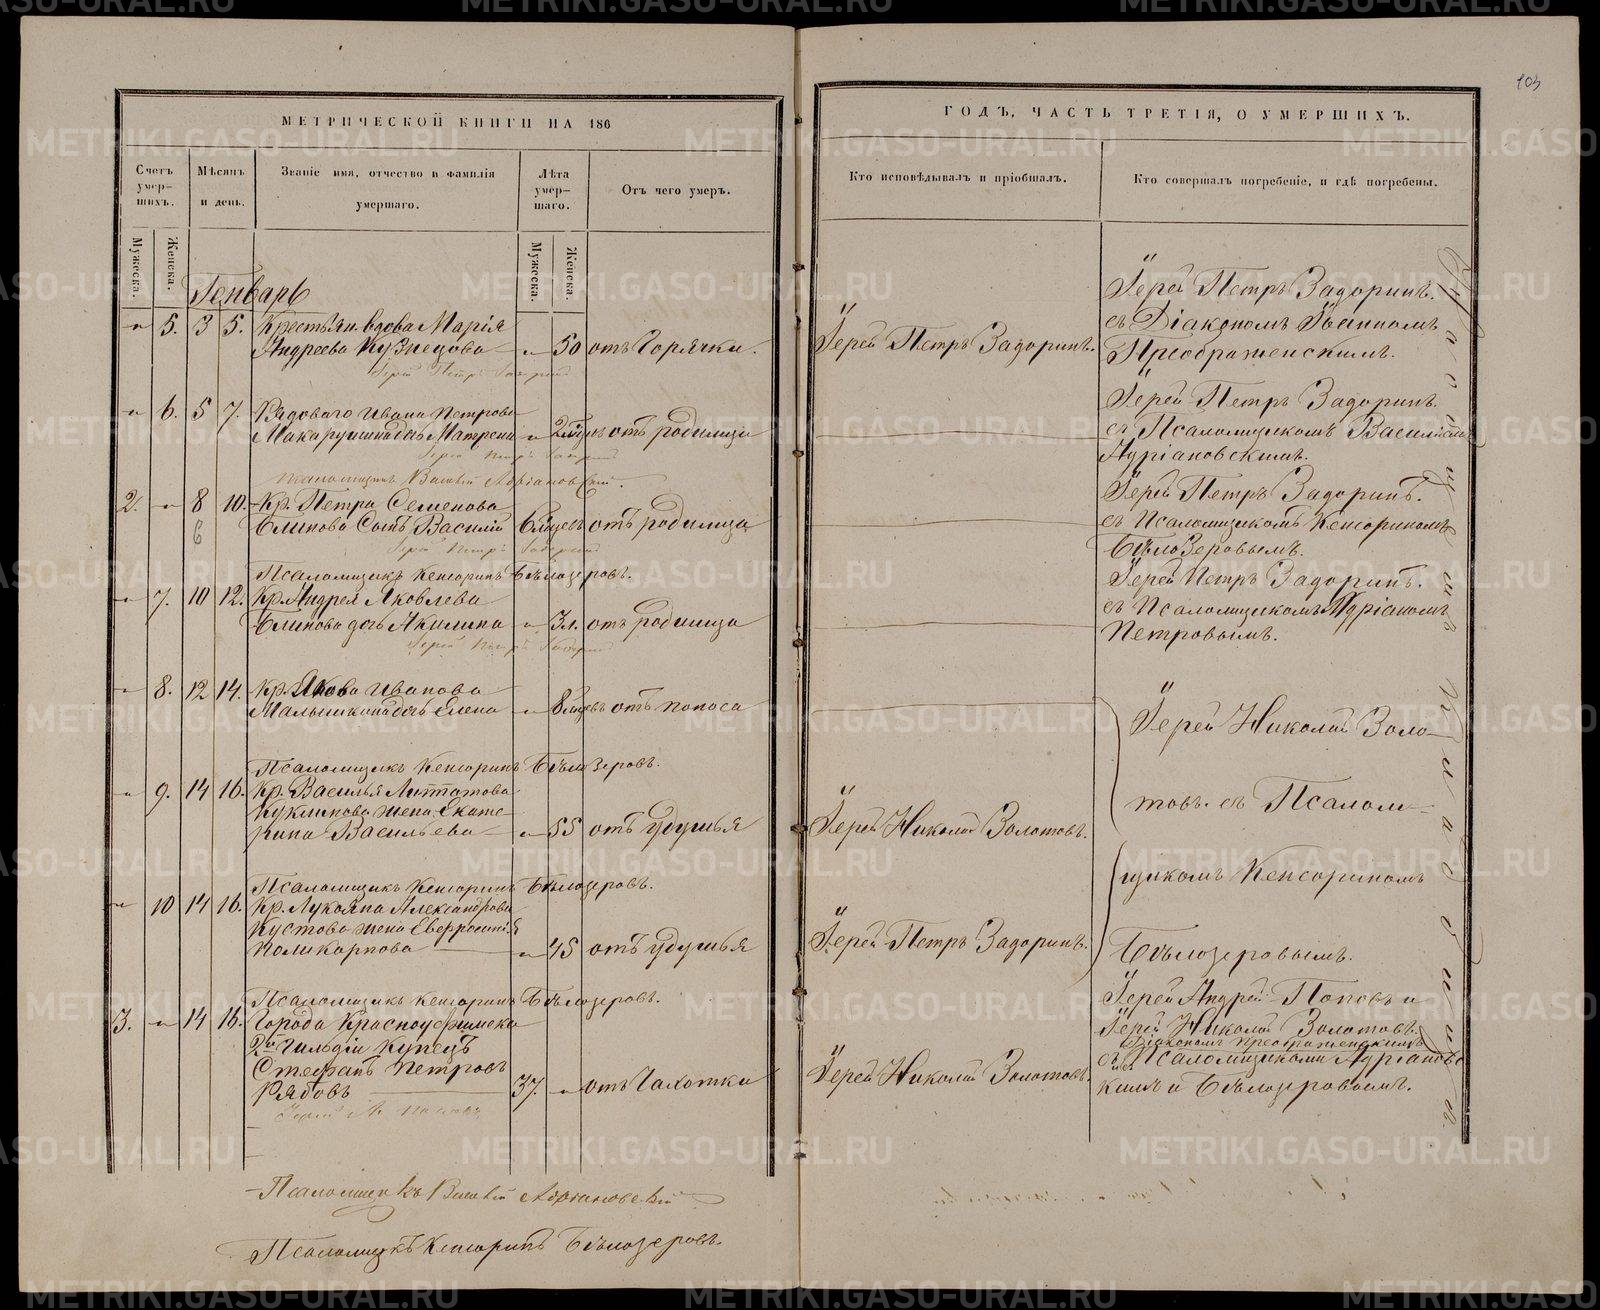 103
МЕТРИЧЕСКОЙ КНИГИ НА 186
Счетъ умер-шихъ.
Мѣсяцъ и день.
Званіе имя, отчество и фамилія умершаго.
Лѣта умер-шаго.
Отъ чего умеръ.
Мужеска.
Женска.
Мужеска.
Женска.
Генварь
" 5. 3 5. Крестьян. вдова Марія
Андреева Кузнецова " 50 отъ Горячки.
Іерей Петръ Задоринъ
" 6. 5 7. Рядоваго Ивана Петрова
Макарушина дочь Матрена " отъ родимца
Іерей Петръ Задоринъ
Псаломщикъ Василій Адріановскій.
2. " 8 10. Кр. Петра Семенова
6
Блинова Сынъ Василій отъ родимца
Іерей Петръ Задоринъ
Псаломщикъ Кенсоринъ Бѣлозеровъ.
" 7. 10 12. Кр. Андрея Яковлева
Блинова дочь Акилина " 3 н. отъ родимца
Іерей Петръ Задоринъ
" 8. 12 14. Кр. Якова Иванова
Малышкина дочь Елена " отъ поноса
Псаломщикъ Кенсоринъ Бѣлозеровъ.
" 9. 14 16. Кр. Василья
Куклинова жена Екате-
рина Васильева " 55 отъ удушья
Псаломщикъ Кенсоринъ Бѣлозеровъ.
" 10 14 16. Кр. Лукояна Александрова
Кустова жена Евфросинія
Поликарпова " 45 отъ удушья
Псаломщикъ Кенсоринъ Бѣлозеровъ.
3. " 14 16. Города Красноуфимска
2й Гильдіи Купецъ
Стефанъ Петровъ
Рябовъ 37. " отъ Чахотки
Іерей А. Поповъ
Псаломщикъ Василій Адріановскій
Псаломщикъ Кенсоринъ Бѣлозеровъ.
ГОДЪ, ЧАСТЬ ТРЕТІЯ, О УМЕРШИХЪ.
Кто исповѣдывалъ и пріобщалъ.
Кто совершалъ погребеніе, и гдѣ погребены.
Іерей Петръ Задоринъ.
съ Діакономъ Іоанномъ
Іерей Петръ Задоринъ.
Преображенскимъ.
Іерей Петръ Задоринъ.
съ Псаломщикомъ Василіемъ
Адріановскимъ.
Іерей Петръ Задоринъ.
съ Псаломщикомъ Кенсориномъ
Бѣлозеровымъ.
Іерей Петръ Задоринъ.
съ Псаломщикомъ Адріаномъ
Петровымъ.
Іерей Николай Золо-
товъ. съ Псалом-
Іерей Николай Золотовъ.
щикомъ Кенсориномъ
Іерей Петръ Задоринъ.
Бѣлозеровымъ.
Іерей Андрей Поповъ и
Іерей Николай Золотовъ.
Діакономъ Преображенскимъ
Іерей Николай Золотовъ.
съ Псаломщиками Адріановс
кимъ и Бѣлозеровымъ.
кладбищѣ
METRIKI.GASO-URAL.RU